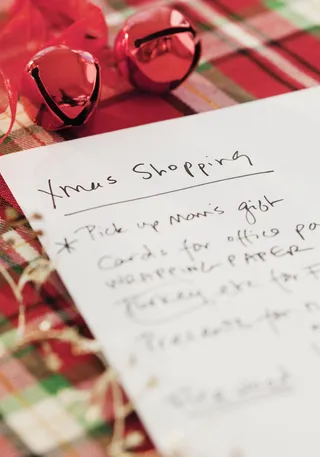 Xmas Shopping
* Pick up Mom's gift
Cards for office
WRAPPING PAPER
Turkey etc for
Presents for